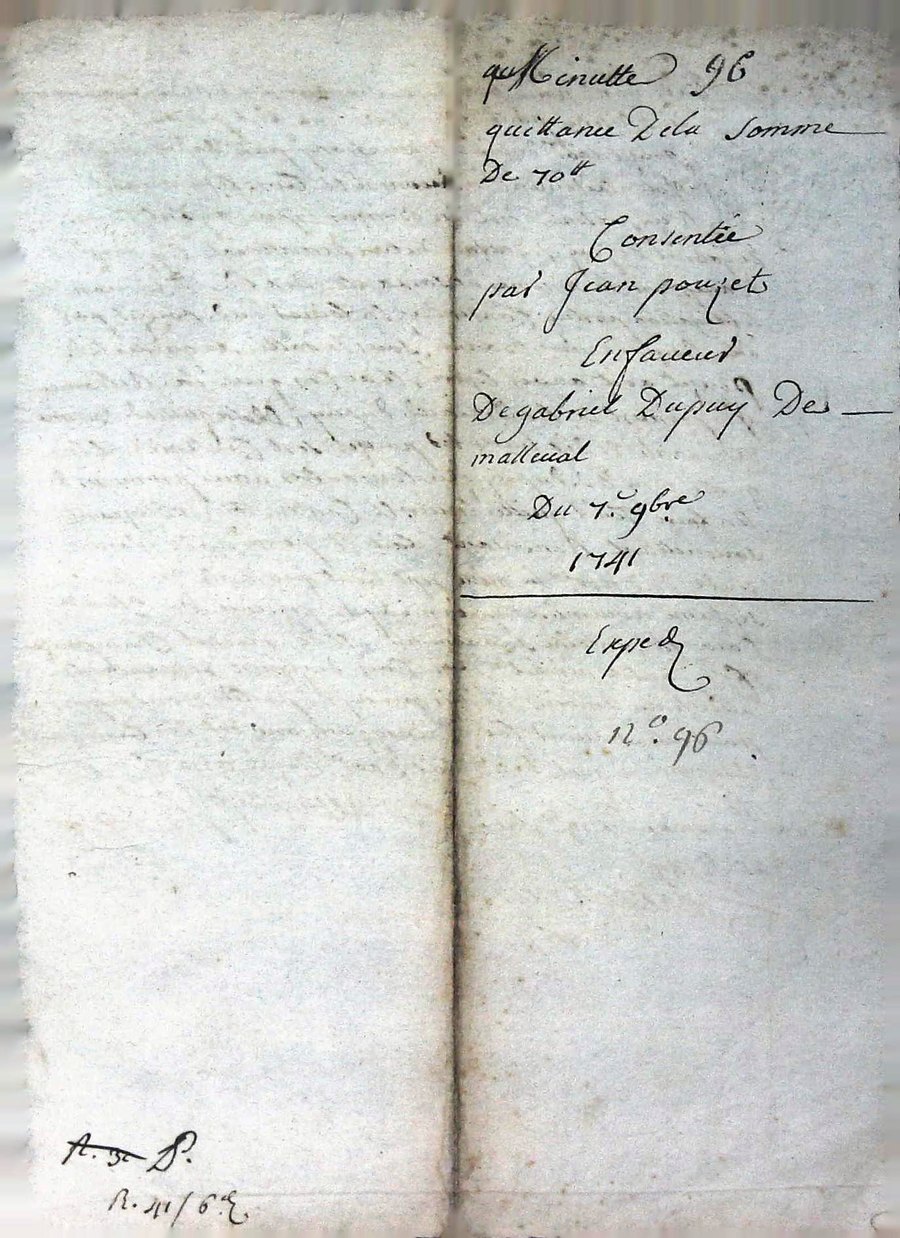 Minutte 96
quittance Dela Somme
De 70tt
Consentée
par Jean pouzet
Enfaveur
De gabriel Dupuy De
malleval
Du 7.e 9bre
1741
Exped
N.o 96
R. 41/6d.